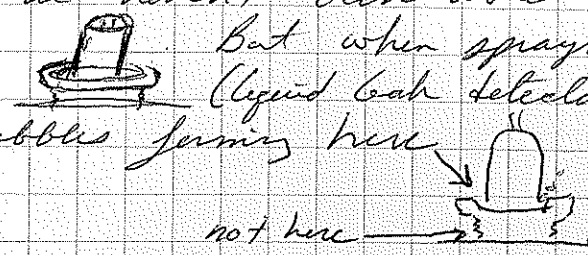 But when spray
(liquid leak detecto
bbles forming here
not here